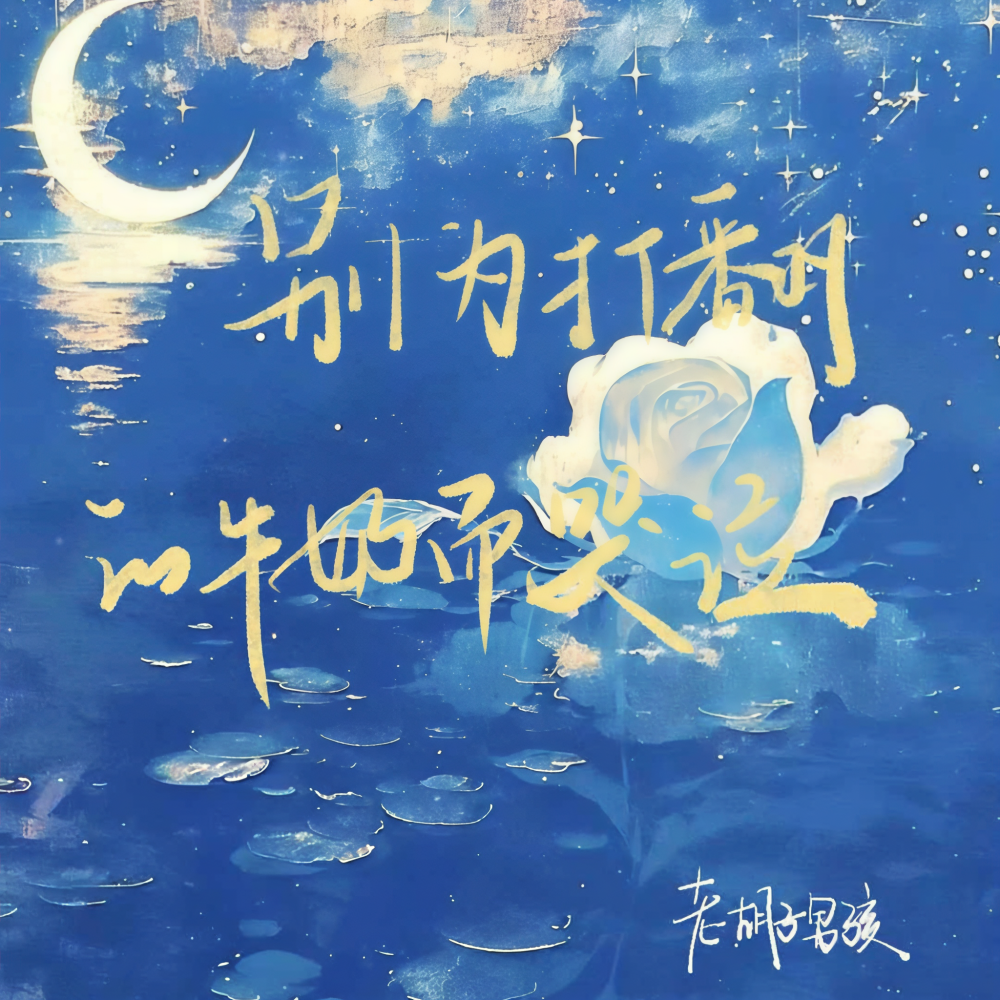 别为打翻
的牛奶而哭泣
老胡子男孩